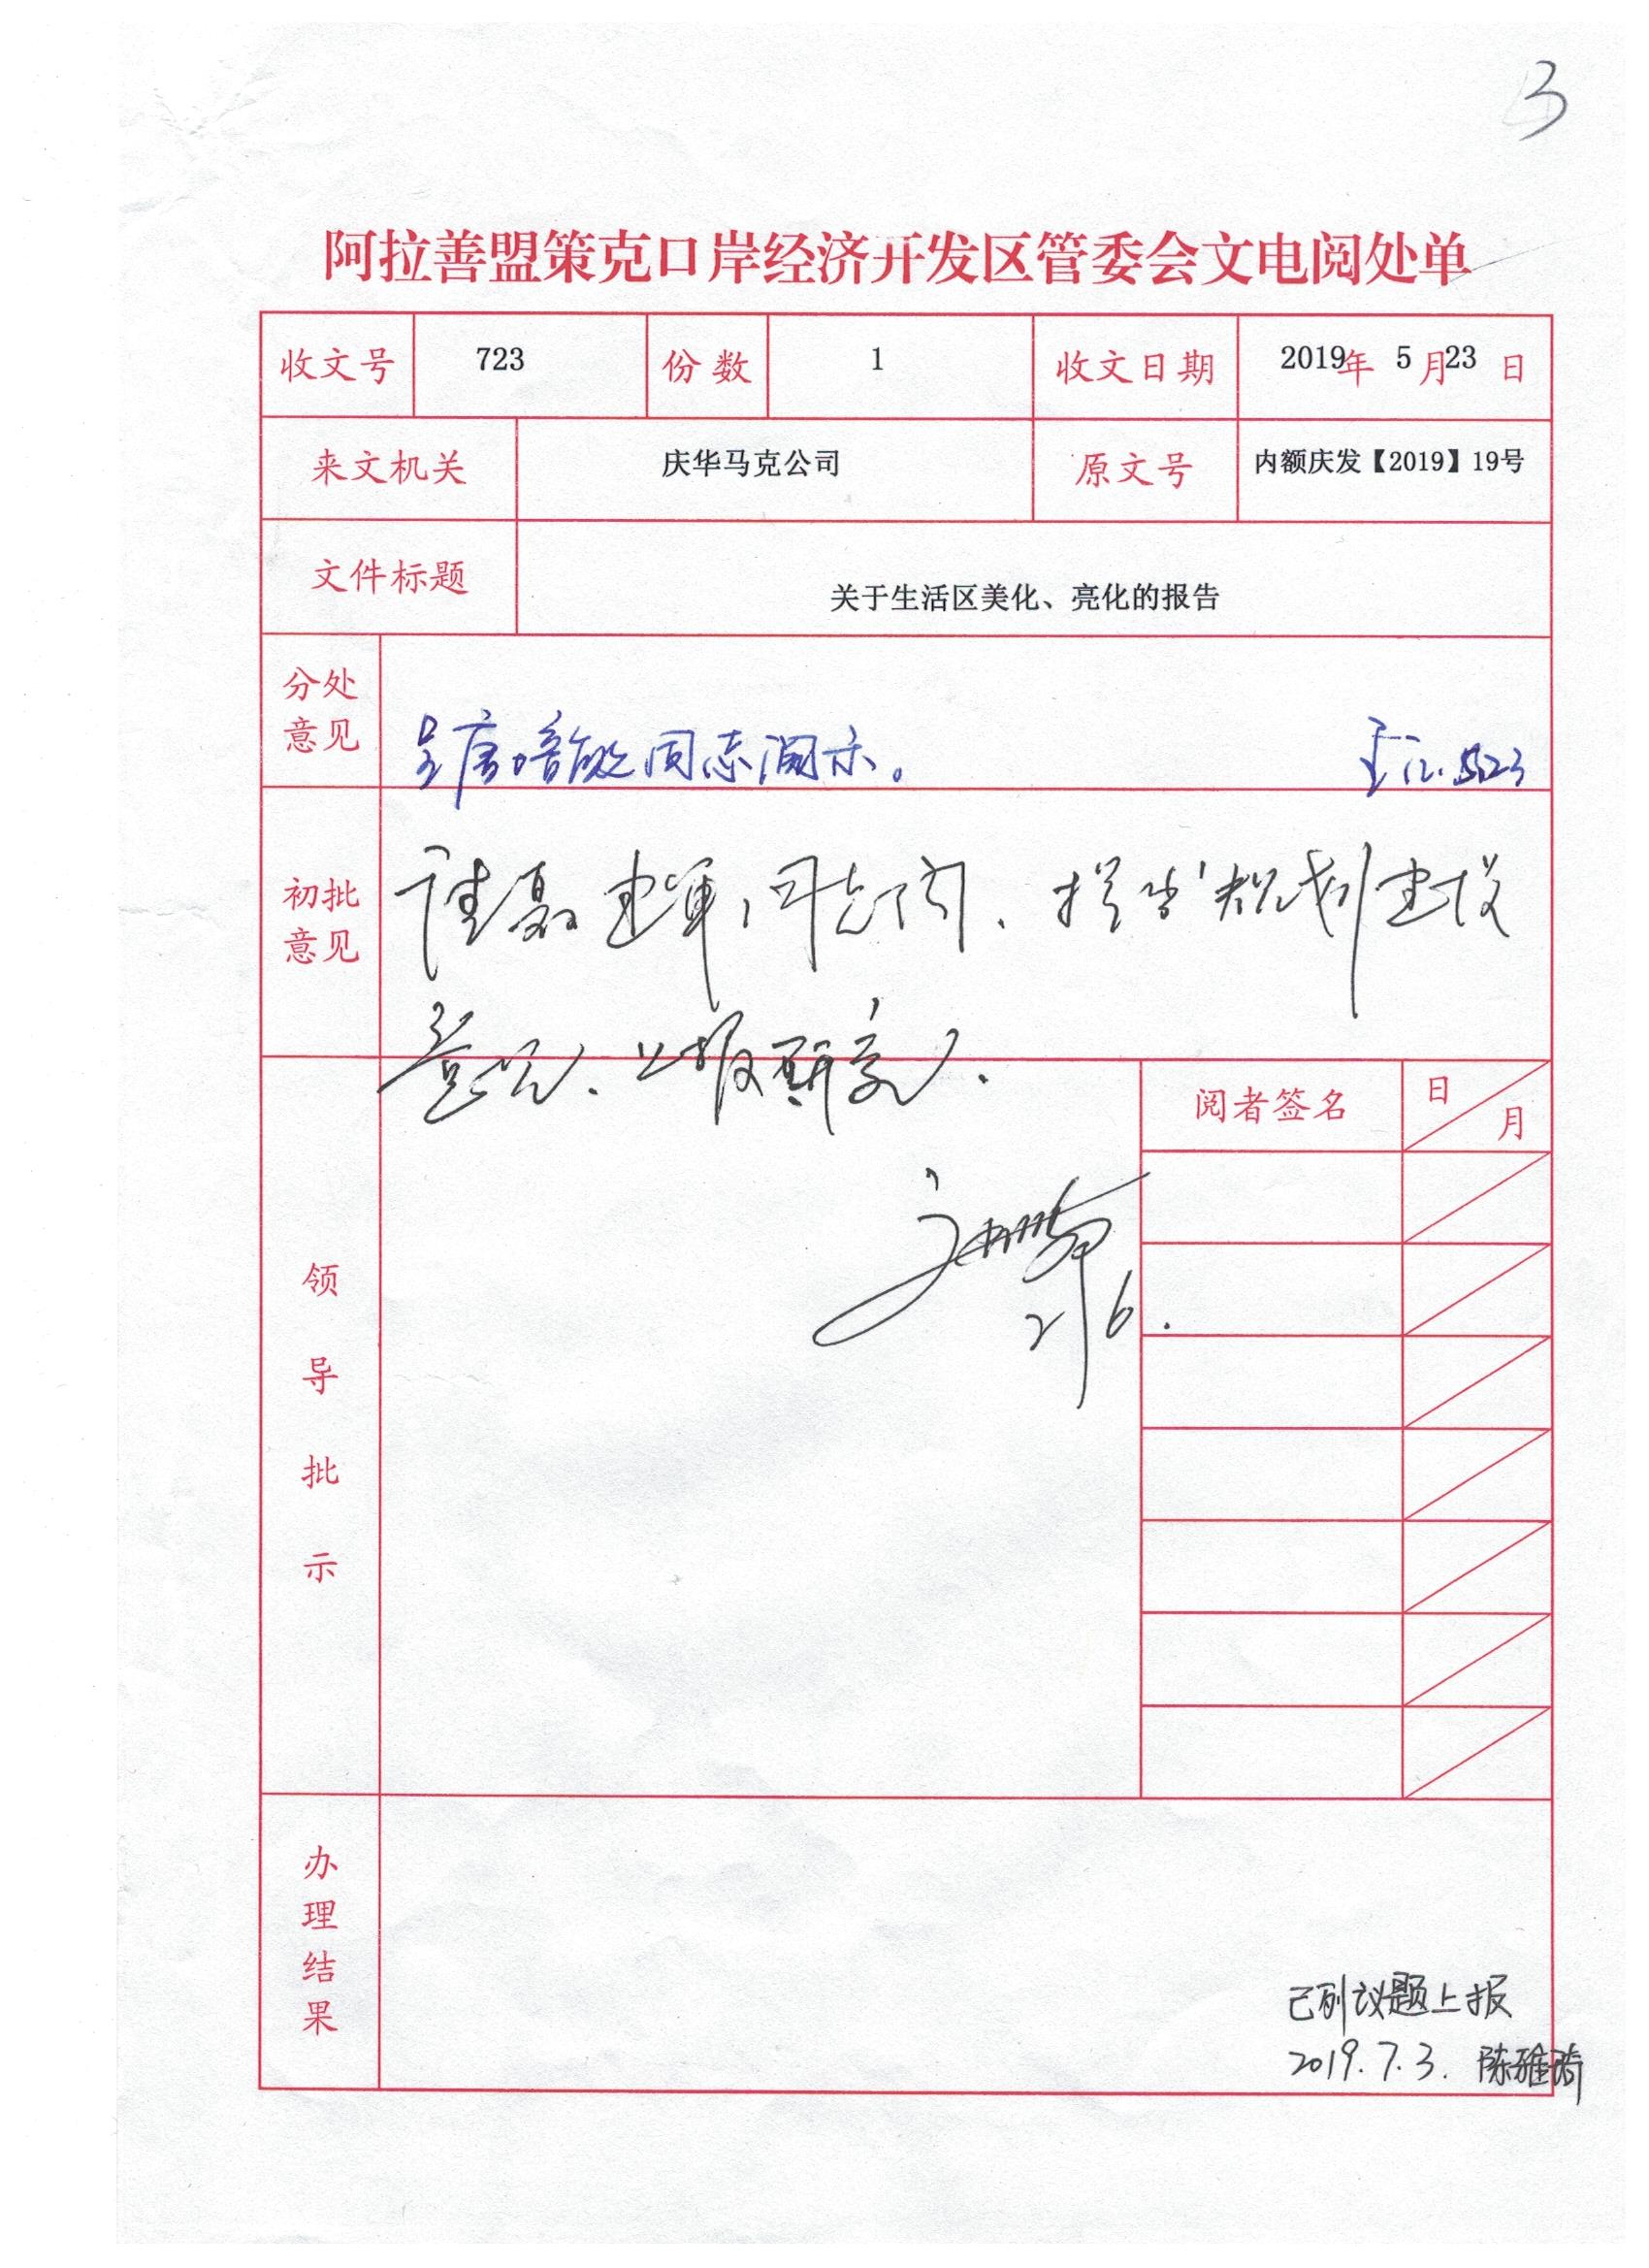 3
阿拉善盟策克口岸经济开发区管委会文电阅处单
收文号 723 份数 1 收文日期 2019年 5月23日
来文机关 庆华马克公司 原文号 内额庆发【2019】19号
文件标题 关于生活区美化、亮化的报告
分处
意见
呈唐培 同志阅示。 5.23
初批
意见
请聂建军同志阅、提出规划建设
意见、上报研究.
阅者签名 日 月
领
导
批
示
办
理
结
果
已列议题上报
2019.7.3. 陈雅琦